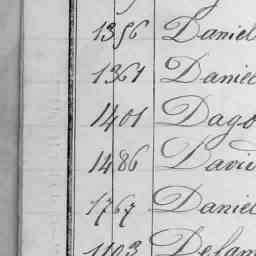 1356 Daniel
1361 Daniel
1401 Dago
1486 Davi
1767 Daniel
1103 Delam